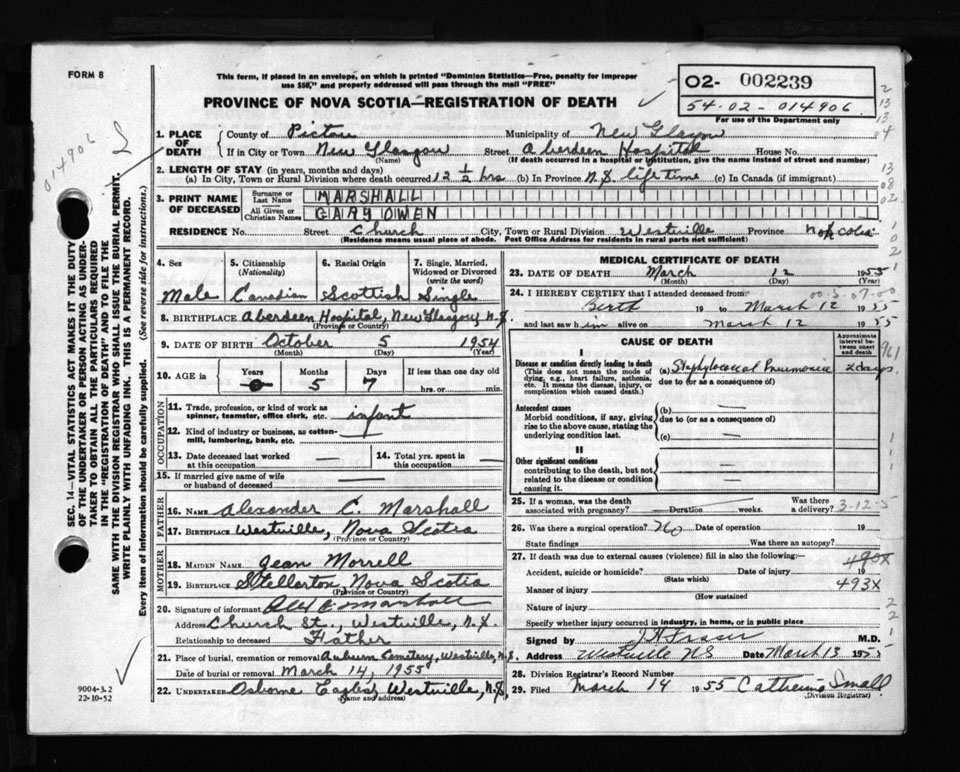 FORM 8
This form, if placed in an envelope, on which is printed "Dominion Statistics—Free, penalty for improper
use $50," and properly addressed will pass through the mail "FREE"
PROVINCE OF NOVA SCOTIA—REGISTRATION OF DEATH
O2- 002239
54-02-014906
For use of the Department only
014906
SEC. 14—VITAL STATISTICS ACT MAKES IT THE DUTY
OF THE UNDERTAKER OR PERSON ACTING AS UNDER-
TAKER TO OBTAIN ALL THE PARTICULARS REQUIRED
IN THE "REGISTRATION OF DEATH" AND TO FILE THE
SAME WITH THE DIVISION REGISTRAR WHO SHALL ISSUE THE BURIAL PERMIT.
WRITE PLAINLY WITH UNFADING INK. THIS IS A PERMANENT RECORD.
Every item of information should be carefully supplied. (See reverse side for instructions.)
1. PLACE OF DEATH
County of Pictou Municipality of New Glasgow
If in City or Town New Glasgow Street Aberdeen Hospital House No.
(Name) (If death occurred in a hospital or institution, give the name instead of street and number)
2. LENGTH OF STAY (in years, months and days)
(a) In City, Town or Rural Division where death occurred 12 1/2 hrs (b) In Province N.S. lifetime (c) In Canada (if immigrant)
3. PRINT NAME OF DECEASED
Surname or Last Name MARSHALL
All Given or Christian Names GARY OWEN
RESIDENCE No. Street Church City, Town or Rural Division Westville Province
(Residence means usual place of abode. Post Office Address for residents in rural parts not sufficient)
4. Sex Male
5. Citizenship (Nationality) Canadian
6. Racial Origin Scottish
7. Single, Married, Widowed or Divorced (write the word) Single
8. BIRTHPLACE Aberdeen Hospital, New Glasgow, N.S.
(Province or Country)
9. DATE OF BIRTH October 5 1954
(Month) (Day) (Year)
10. AGE in Years 0 Months 5 Days 7 If less than one day old
hrs. or min.
OCCUPATION
11. Trade, profession, or kind of work as
spinner, teamster, office clerk, etc. infant
12. Kind of industry or business, as cotton-
mill, lumbering, bank, etc. —
13. Date deceased last worked
at this occupation —
14. Total yrs. spent in
this occupation —
15. If married give name of wife
or husband of deceased —
FATHER
16. NAME Alexander C. Marshall
17. BIRTHPLACE Westville, Nova Scotia
(Province or Country)
MOTHER
18. MAIDEN NAME Jean Morrell
19. BIRTHPLACE Stellerton, Nova Scotia
(Province or Country)
20. Signature of informant Alex C Marshall
Address Church St., Westville, N.S.
Relationship to deceased Father
21. Place of burial, cremation or removal Auburn Cemetery, Westville, N.S.
Date of burial or removal March 14, 1955
22. UNDERTAKER Osborne Westville, N.S.
(Name and address)
9004-3.2
22-10-52
MEDICAL CERTIFICATE OF DEATH
23. DATE OF DEATH March 12 1955
(Month) (Day) (Year)
24. I HEREBY CERTIFY that I attended deceased from:
Birth 19 to March 12 1955
and last saw him alive on March 12 1955
CAUSE OF DEATH
Approximate interval between onset and death
I
Disease or condition directly leading to death
(This does not mean the mode of
dying, e.g., heart failure, asthenia,
etc. It means the disease, injury, or
complication which caused death.)
(a) Staphylococcal Pneumonia 2 days.
due to (or as a consequence of)
Antecedent causes
Morbid conditions, if any, giving
rise to the above cause, stating the
underlying condition last.
(b) —
due to (or as a consequence of)
(c) —
II
Other significant conditions
contributing to the death, but not
related to the disease or condition
causing it.
25. If a woman, was the death
associated with pregnancy? Duration weeks. Was there a delivery?
3-12-5
26. Was there a surgical operation? No Date of operation 19
State findings Was there an autopsy?
27. If death was due to external causes (violence) fill in also the following:—
Accident, suicide or homicide? Date of injury 19
(State which)
490X
493X
Manner of injury
(How sustained
Nature of injury
Specify whether injury occurred in industry, in home, or in public place
Signed by J H Fraser M.D.
Address Westville NS Date March 13 1955
28. Division Registrar's Record Number
29. Filed March 14 1955 Catherine Small
(Division Registrar)